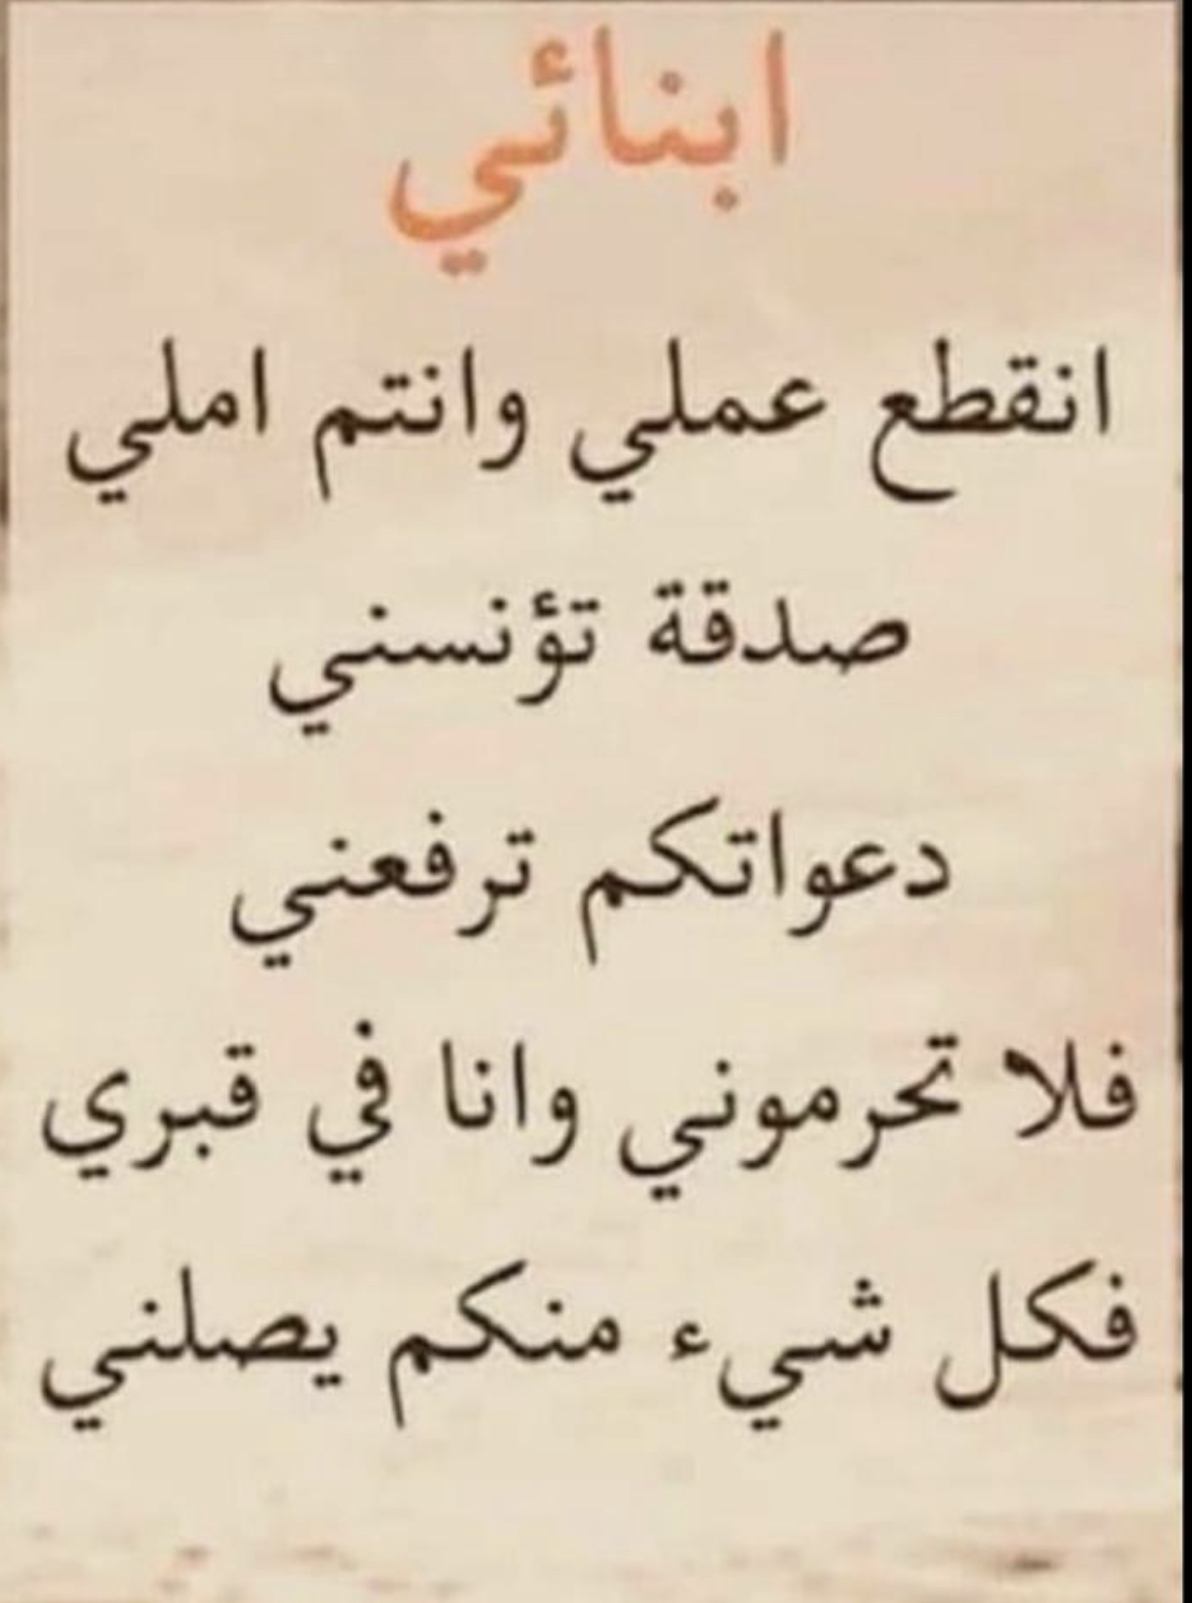 ابنائي
انقطع عملي وانتم املي
صدقة تؤنسني
دعواتكم ترفعني
فلا تحرموني وانا في قبري
فكل شيء منكم يصلني